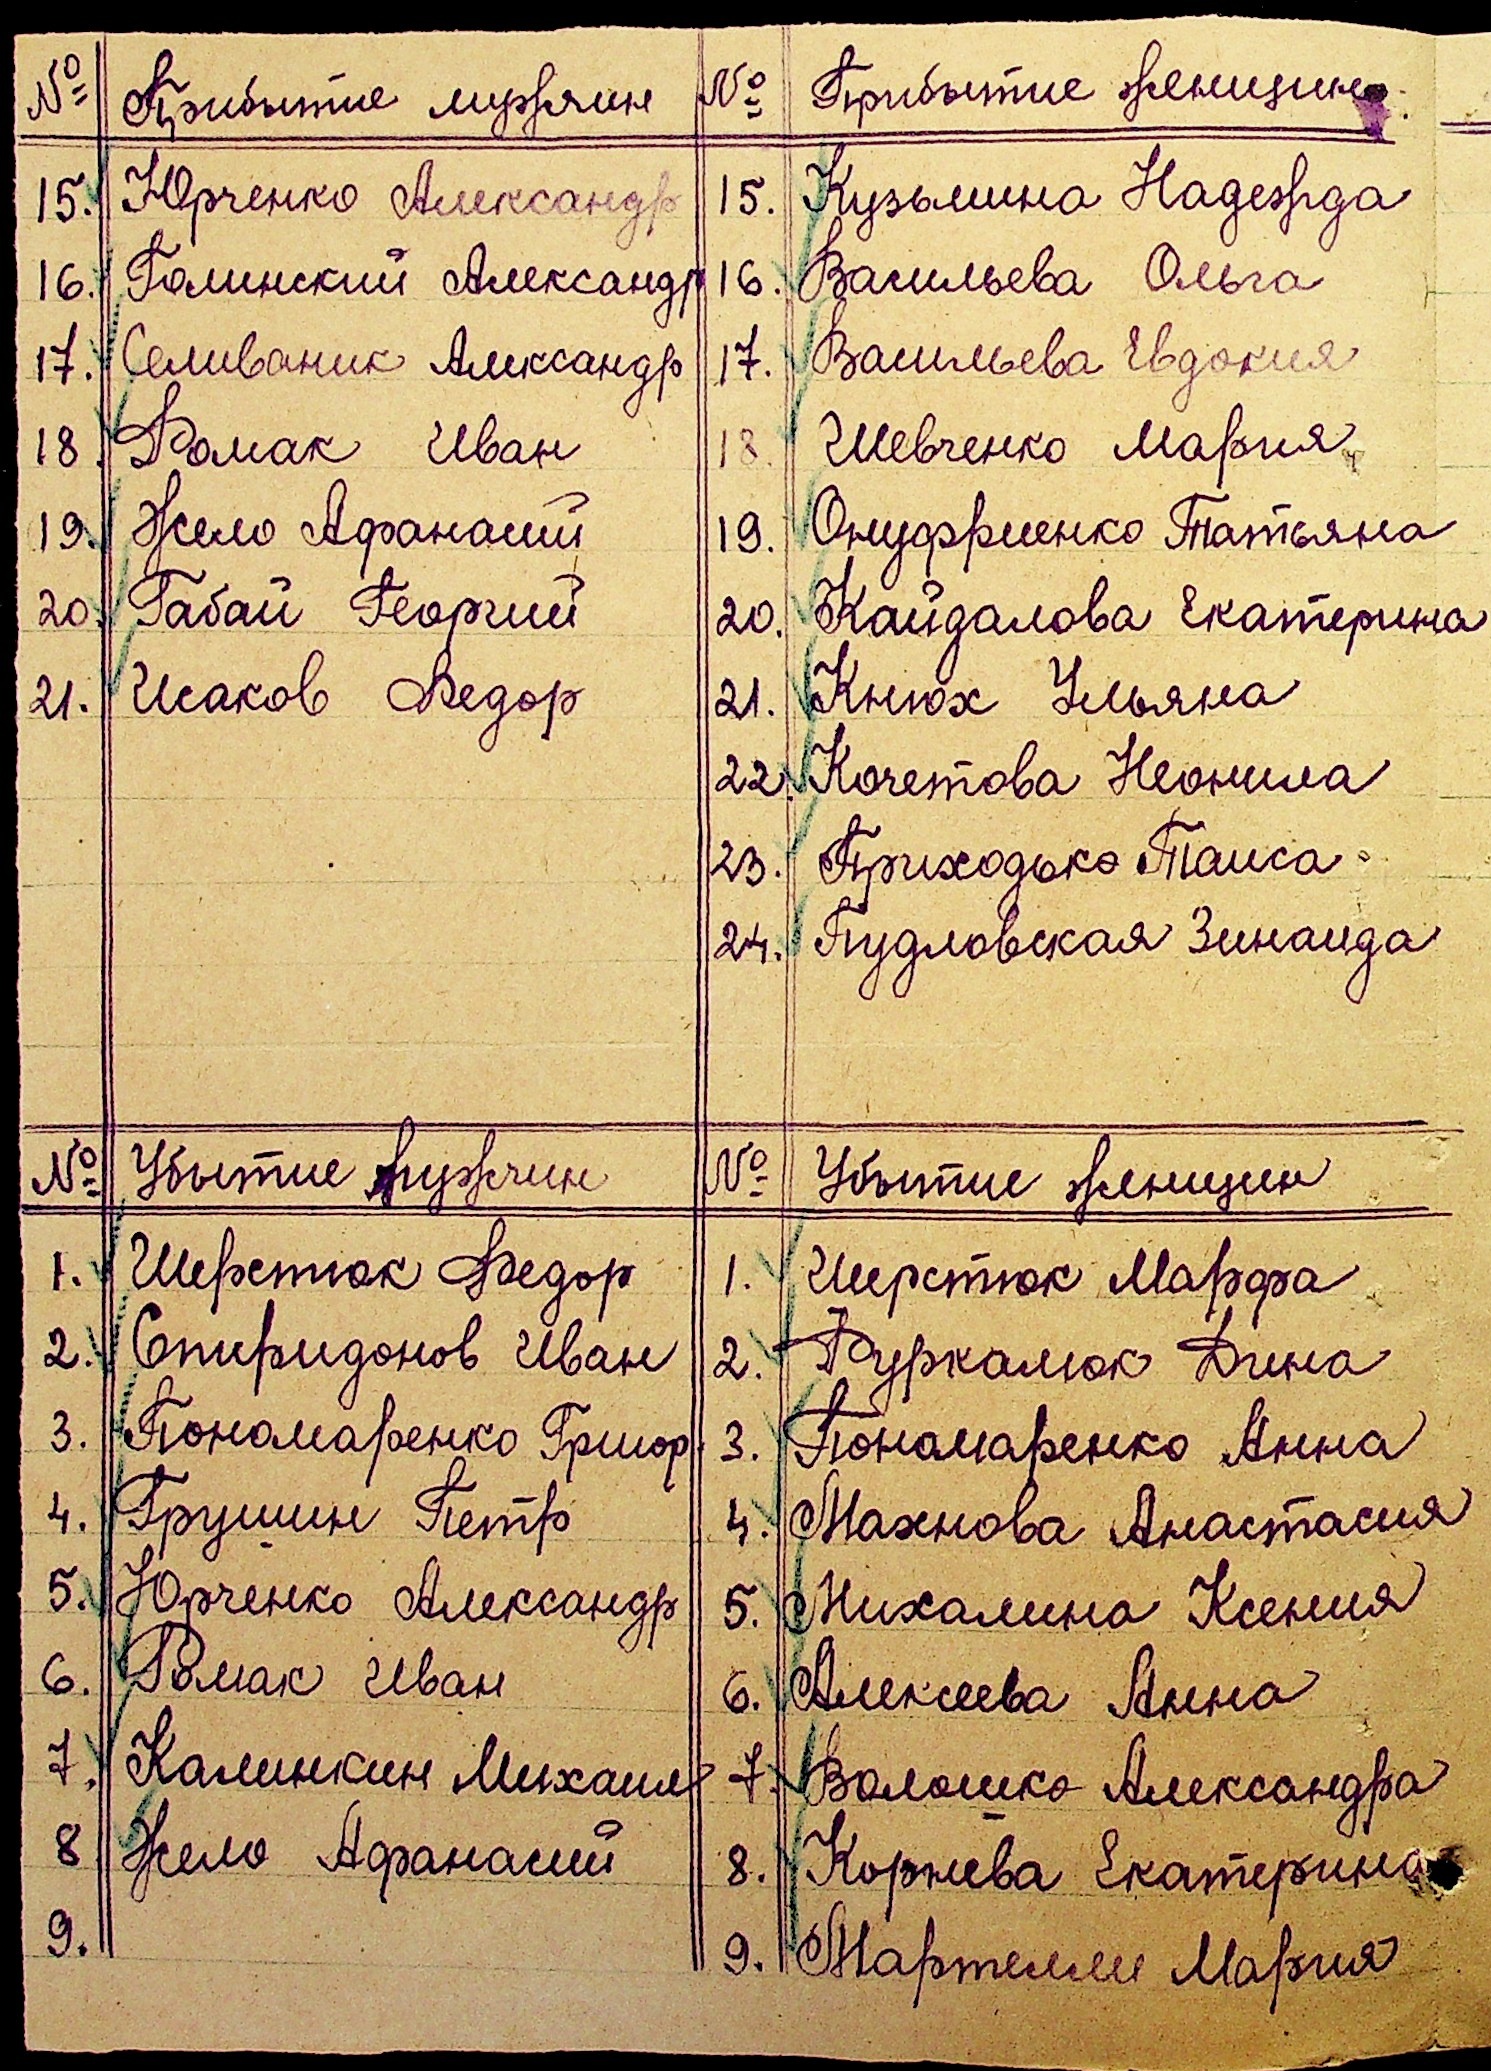 № Прибытие мужчин № Прибытие женщин
15. Юрченко Александр 15. Кузьмина Надежда
16. Голинский Александр 16. Васильева Ольга
17. Селиваник Александр 17. Васильева Евдокия
18. Ромак Иван 18. Шевченко Мария
19. Жело Афанасий 19. Онуфриенко Татьяна
20. Габай Георгий 20. Кайдалова Екатерина
21. Исаков Федор 21. Кнюх Ульяна
22. Кочетова Неонила
23. Приходько Таиса
24. Пудловская Зинаида
№ Убытие мужчин № Убытие женщин
1. Шерстюк Федор 1. Шерстюк Марфа
2. Спиридонов Иван 2. Фуркалюк Дина
3. Пономаренко Григор. 3. Пономаренко Анна
4. Грушин Петр 4. Махнова Анастасия
5. Юрченко Александр 5. Михалина Ксения
6. Ромак Иван 6. Алексеева Анна
7. Калинкин Михаил 7. Волошко Александра
8. Жело Афанасий 8. Корнева Екатерина
9. 9. Мартелли Мария